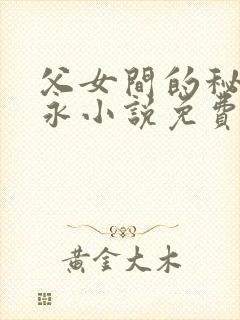 父女間的秘
永小說免費
黃金大木